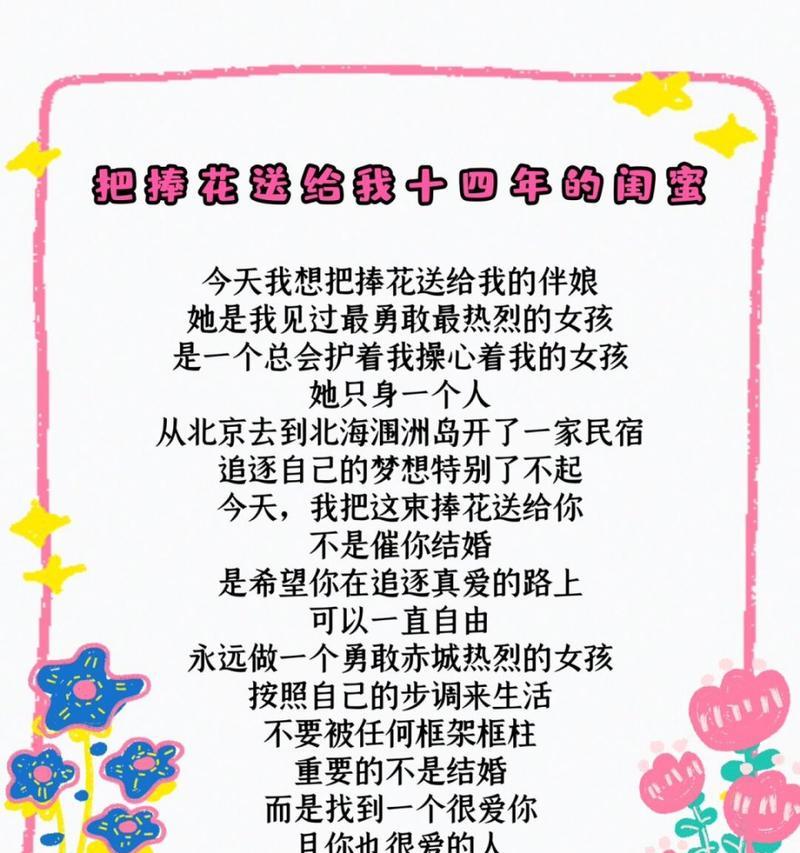 把捧花送给我十四年的闺蜜
今天我想把捧花送给我的伴娘
她是我见过最勇敢最热烈的女孩
是一个总会护着我操心着我的女孩
她只身一个人
从北京去到北海涠洲岛开了一家民宿
追逐自己的梦想特别了不起
今天，我把这束捧花送给你
不是催你结婚
是希望你在追逐真爱的路上
可以一直自由
永远做一个勇敢赤城热烈的女孩
按照自己的步调来生活
不要被任何框架框柱
重要的不是结婚
而是找到一个很爱你
且你也很爱的人